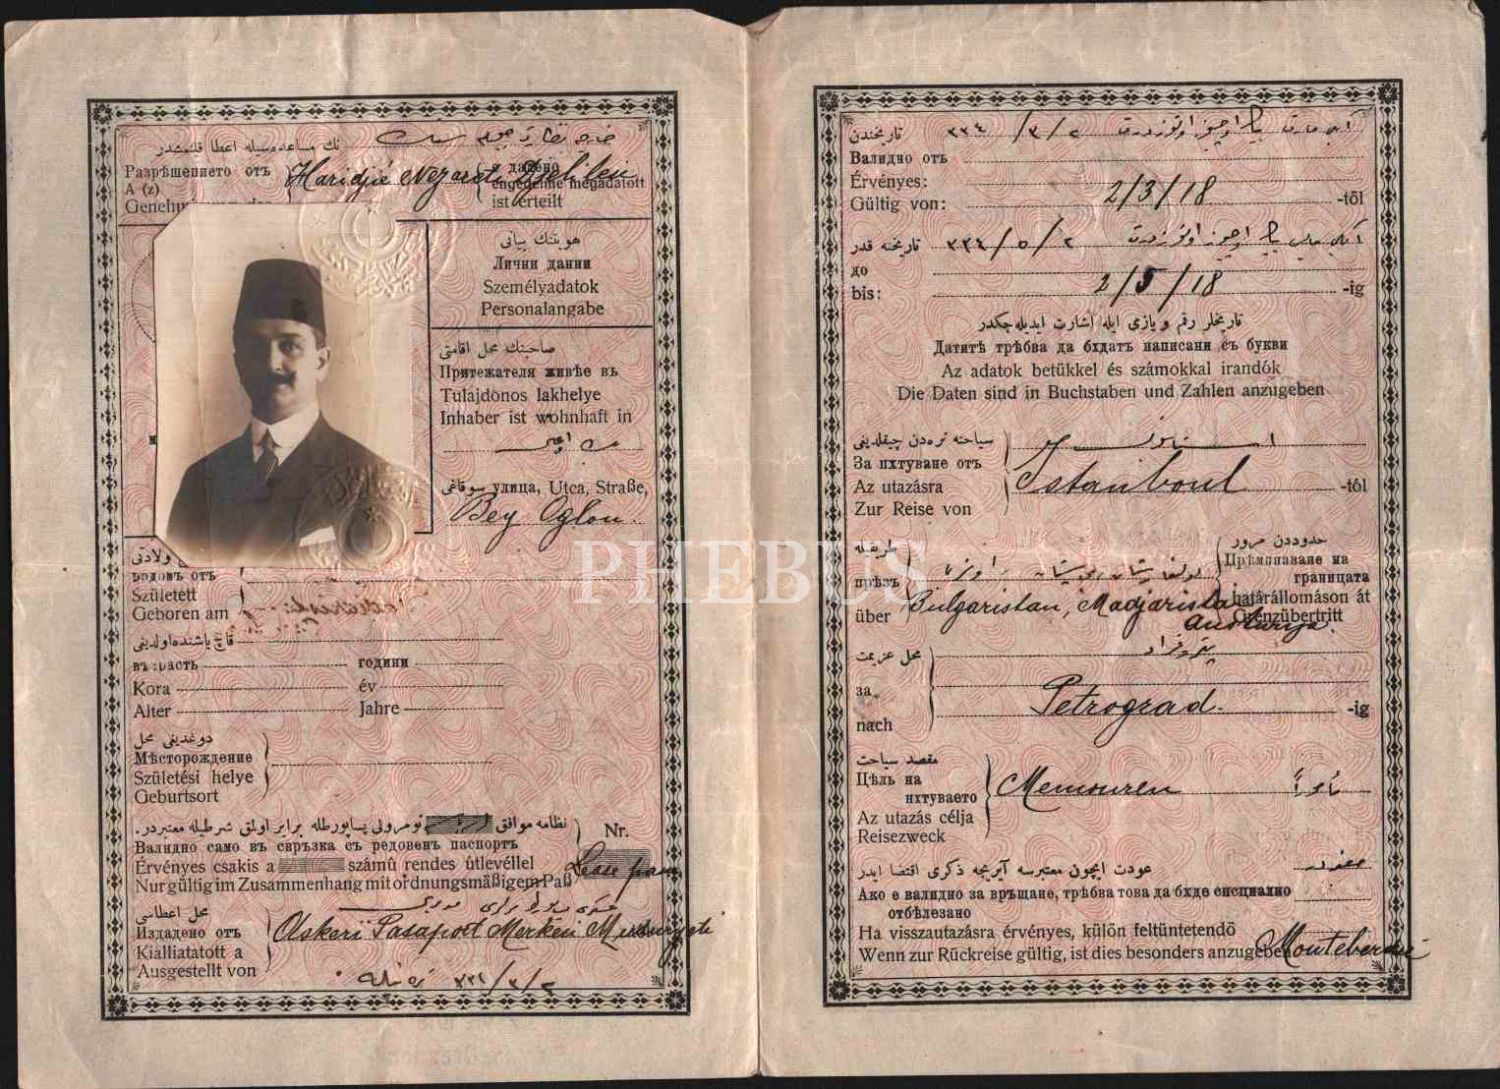 نك مساعده سيله اعطا قلنمشدر
Разрѣшението отъ
A (z)
Haridjié Nezareti
(а) дадено
engedelme megadatott
ist erteilt
هويتنك بيانى
Лични данни
Személyadatok
Personalangabe
صاحبنك محل اقامتى
Притежателя живѣе въ
Tulajdonos lakhelye
Inhaber ist wohnhaft in
سوقاغى улица, Utca, Straße,
Bey Oglou
ولادتى
роденъ отъ
Született
Geboren am
قاچ ياشنده اولديغى
възрасть години
Kora év
Alter Jahre
دوغديغى محل
Мѣсторождение
Születési helye
Geburtsort
نظامه موافق نومرولى پساپورطله برابر اولمق شرطيله معتبردر.
Nr.
Валидно само въ свръзка съ редовенъ паспортъ
Érvényes csakis a számú rendes útlevéllel
Nur gültig im Zusammenhang mit ordnungsmäßigem Paß
محل اعطاسى
Издадено отъ
Kiálliatatott a
Ausgestellt von
Askeri Pasaport Merkezi
٣٣٤/٣/٢
تاريخندن ٣٣٤/٣/٢
Валидно отъ
Érvényes:
Gültig von: 2/3/18 -től
تاريخنه قدر ٣٣٤/٥/٢
до
bis: 2/5/18 -ig
تاريخلر رقم و يازى ايله اشارت ايديله جكدر
Датитѣ трѣбва да бѫдатъ написани съ букви
Az adatok betükkel és számokkal irandók
Die Daten sind in Buchstaben und Zahlen anzugeben
سياحته نره دن چيقلديغى استانبول
За пѫтуване отъ
Az utazásra Istanboul -tól
Zur Reise von
طريقيله
прѣзъ
über
Bulgaristan, Madjaristan
Austuriya
حدوددن مرور
Прѣминаване на
границата
határállomáson át
Grenzübertritt
محل عزيمت پتروغراد
за
nach Petrograd -ig
مقصد سياحت
Цѣль на
пѫтуването
Az utazás célja
Reisezweck
Memouren مأموراً
عودت ايچون معتبرسه آيريجه ذكرى اقتضا ايدر
Ако е валидно за връщане, трѣбва това да бѫде специално
отбѣлезано
Ha visszautazásra érvényes, külön feltüntetendő
Wenn zur Rückreise gültig, ist dies besonders anzugeben
PHEBUS